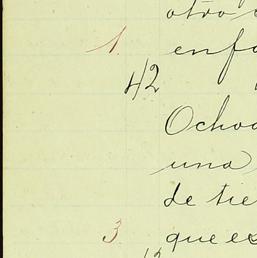 otro
1. enfa
42
Ochoa
una
de tie
3. que ex
12